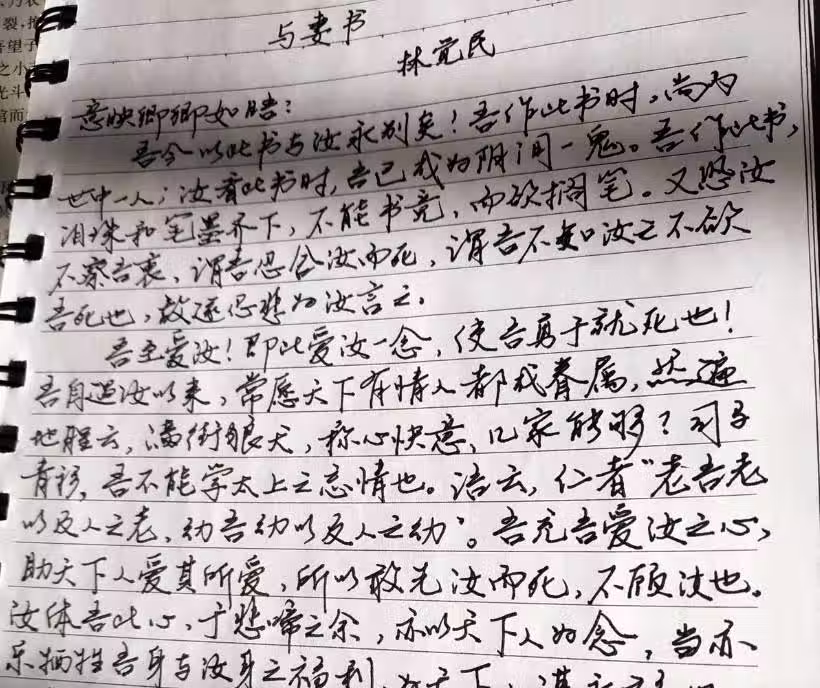 与妻书
林觉民
意映卿卿如晤：
吾今以此书与汝永别矣！吾作此书时，尚为
世中一人；汝看此书时，吾已成为阴间一鬼。吾作此书，
泪珠和笔墨齐下，不能书竟，而欲搁笔。又恐汝
不察吾衷，谓吾忍舍汝而死，谓吾不知汝之不欲
吾死也，故遂忍悲为汝言之。
吾至爱汝！即此爱汝一念，使吾勇于就死也！
吾自遇汝以来，常愿天下有情人都成眷属，然遍
地腥云，满街狼犬，称心快意，几家能够？司马
青衫，吾不能学太上之忘情也。语云，仁者“老吾老
以及人之老，幼吾幼以及人之幼”。吾充吾爱汝之心，
助天下人爱其所爱，所以敢先汝而死，不顾汝也。
汝体吾此心，于悲啼之余，亦以天下人为念，当亦
乐牺牲吾身与汝身之福利，为天下人谋永福
裂，
望子
之小
光斗